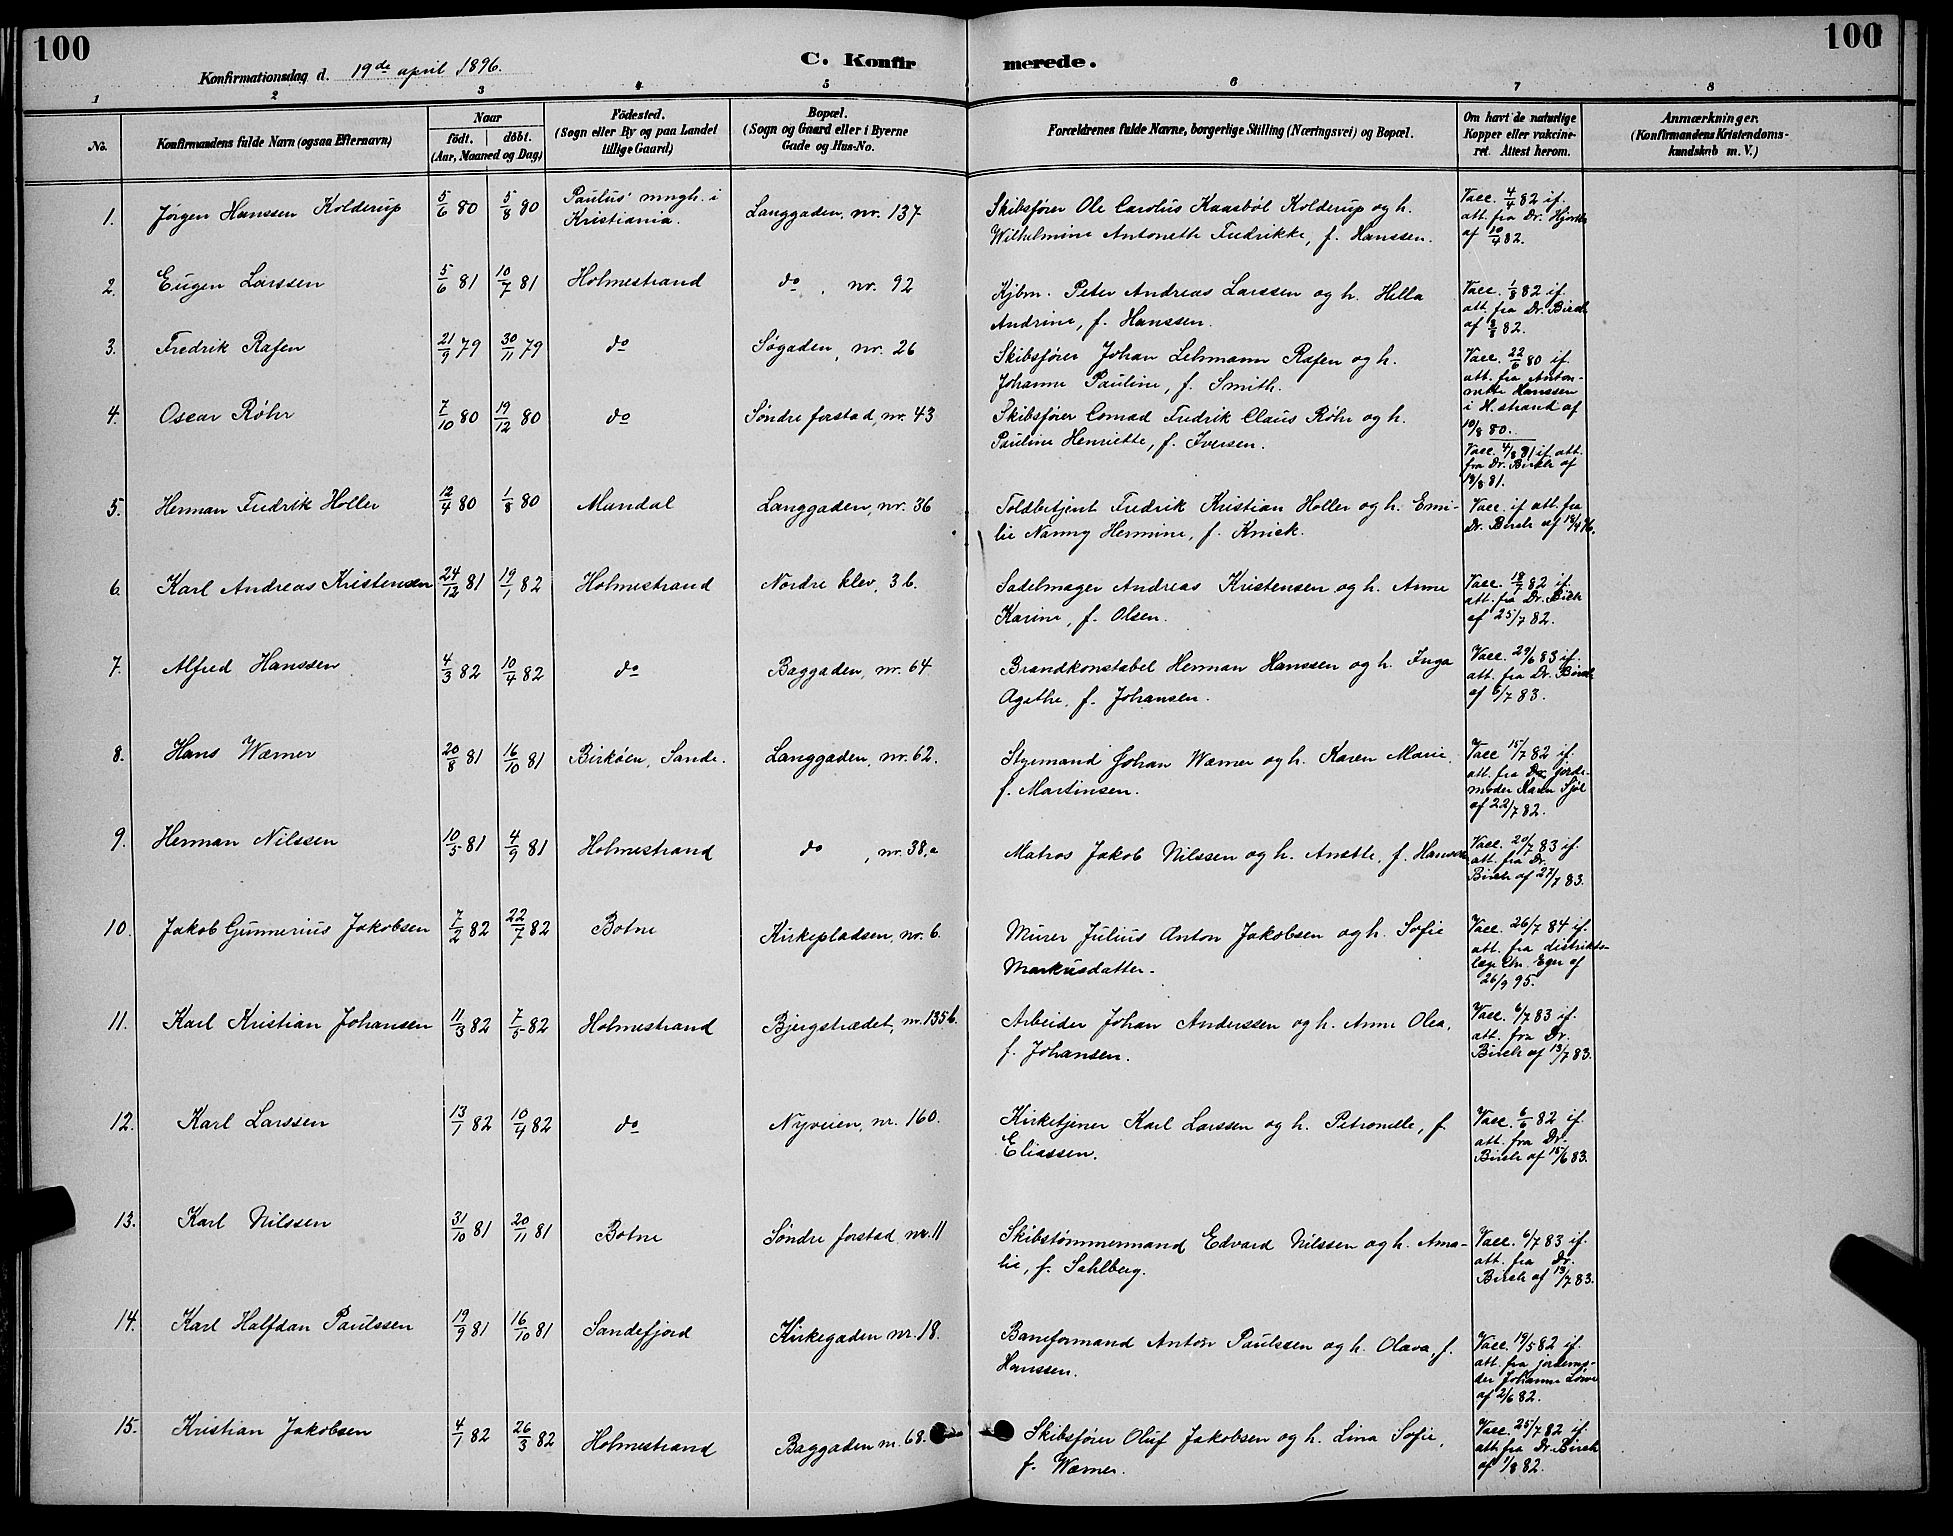 100
100
Konfirmationsdag d. 19de april 1896.
C. Konfirmerede.
1 2 3 4 5 6 7 8
No. Konfirmandens fulde Navn (ogsaa Efternavn) Naar født. døbt. (Aar, Maaned og Dag) Födested. (Sogn eller By og paa Landet tillige Gaard) Bopæl. (Sogn og Gaard eller i Byerne Gade og Hus-No. Forældrenes fulde Navne, borgerlige Stilling (Næringsvei) og Bopæl. Om havt de naturlige Kopper eller vakcineret. Attest herom. Anmærkninger. (Konfirmandens Kristendomskundskab m. V.)
1. Jørgen Hanssen Kolderup 5/6 80 5/8 80 Paulus' mngh. i Kristiania. Langgaden, nr. 137
Skibsfører Ole Carolus Kaasbøl Kolderup og h.
Wilhelmine Antoneth Fredrikke, f. Hanssen.
Vacc. 4/4 82 if.
att. fra Dr. Hjorth
af 10/4 82.
2. Eugen Larssen 5/6 81 10/7 81 Holmestrand do, nr. 92
Kjbm. Peter Andreas Larssen og h. Hella
Andrine, f. Hanssen.
Vacc. 1/8 82 if.
att. fra Dr. Birch
af 8/8 82.
3. Fredrik Rafen 21/9 79 30/11 79 do Søgaden, nr. 26
Skibsfører Johan Lehmann Rafen og h.
Johanne Pauline, f. Smith.
Vacc. 22/6 80 if.
att. fra Anton-
nette Hanssen
i H.strand af
10/8 80.
4. Oscar Röhr 7/10 80 19/12 80 do Søndre forstad, nr. 43
Skibsfører Conrad Fredrik Claus Röhr og h.
Pauline Henriette, f. Iversen.
Vacc. 4/8 81 if. att.
fra Dr. Birch af
12/8 81.
5. Herman Fredrik Holler 12/4 80 1/8 80 Mandal Langgaden, nr. 36
Toldbetjent Fredrik Kristian Holler og h. Emi-
lie Nanny Hermine, f. Knick.
Vacc. if. att. fra
Dr. Birch af 18/4 96.
6. Karl Andreas Kristensen 24/12 81 19/1 82 Holmestrand Nordre klev, 3 b.
Sadelmager Andreas Kristensen og h. Anne
Karine, f. Olsen.
Vacc. 18/7 82 if.
att. fra Dr. Birch
af 25/7 82.
7. Alfred Hanssen 4/3 82 10/4 82 do Baggaden, nr. 64
Brandkonstabel Herman Hanssen og h. Inga
Agathe, f. Johansen.
Vacc. 29/6 83 if.
att. fra Dr. Birch
af 6/7 83.
8. Hans Wærner 20/8 81 16/10 81 Birkøen, Sande. Langgaden, nr. 62.
Styrmand Johan Wærner og h. Karen Marie,
f. Martinsen.
Vacc 15/7 82 if.
att. fra Dr jorde-
moder Karen Sjøl
af 22/7 82.
9. Herman Nilssen 10/5 81 4/9 81 Holmestrand do, nr. 38, a
Matros Jakob Nilssen og h. Anette, f. Hansen
Vacc. 20/7 83 if.
att. fra Dr.
Birch af 27/7 83.
10. Jakob Gunnerius Jakobsen 7/2 82 22/7 82 Botne Kirkepladsen, nr. 6.
Murer Julius Anton Jakobsen og h. Sofie
Markusdatter.
Vacc. 26/7 84 if.
att. fra distrikts-
læge Chr. Eger af
26/9 95.
11. Karl Kristian Johansen 11/3 82 7/5 82 Holmestrand Bjergstrædet, nr. 135 b.
Arbeider Johan Anderssen og h. Anne Olea,
f. Johansen.
Vacc. 6/7 83 if.
att. fra Dr.
Birch af 13/7 83.
12. Karl Larssen 13/1 82 10/4 82 do Nyveien, nr. 160.
Kirketjener Karl Larssen og h. Petronelle, f.
Eliassen.
Vacc. 6/6 82 if.
att. fra Dr.
Birch af 15/6 83.
13. Karl Nilssen 31/10 81 20/11 81 Botne Søndre forstad, nr. 11
Skibstømmermand Edvard Nilssen og h. Ama-
lie, f. Sahlberg.
Vacc. 6/7 83 if.
att. fra Dr.
Birch af 13/7 83.
14. Karl Halfdan Paulssen 19/9 81 16/10 81 Sandefjord Kirkegaden nr. 18.
Baneformand Anton Paulssen og h. Olava, f.
Hanssen.
Vacc. 19/5 82 if.
att. fra jordemo-
der Johanne
af 2/6 82.
15. Kristian Jakobsen 4/1 82 26/3 82 Holmestrand Baggaden nr. 68.
Skibsfører Oluf Jakobsen og h. Lina Sofie,
f. Wærner.
Vacc. 25/7 82 if.
att. fra Dr. Birch
af 1/8 82.